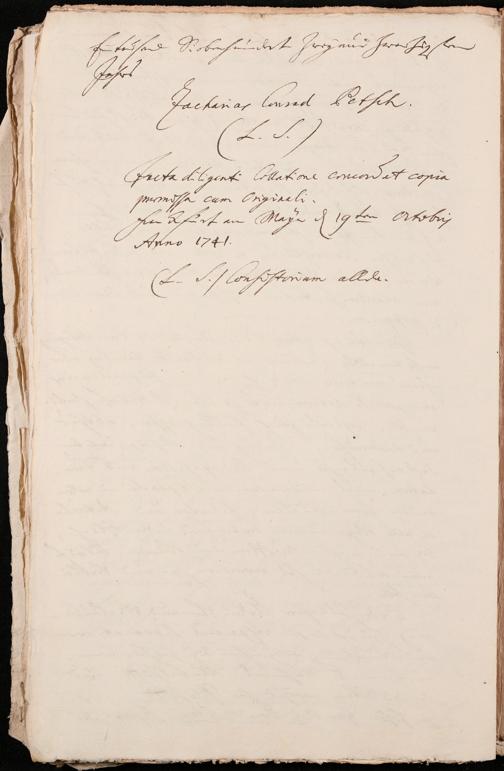 Eintausend Siebenhundert Zwey und Zwanzigsten
Jahrs
Zacharias Conrad Petsch.
(L. S.)
Facta diligenti Collatione concordat copia
praemissa cum Originali.
Franckfurt am Mayn d 19ten Octobris
Anno 1741.
(L. S.) Consistorium allda.